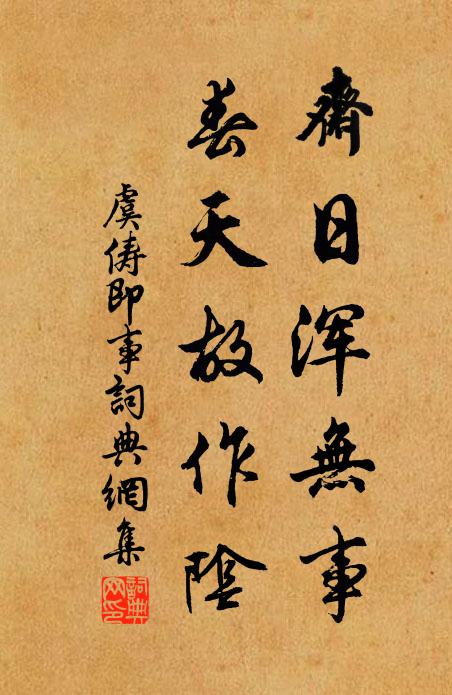 齋日浑無事
春天故作陰
虞俦即事詞典網集
詞典
网印